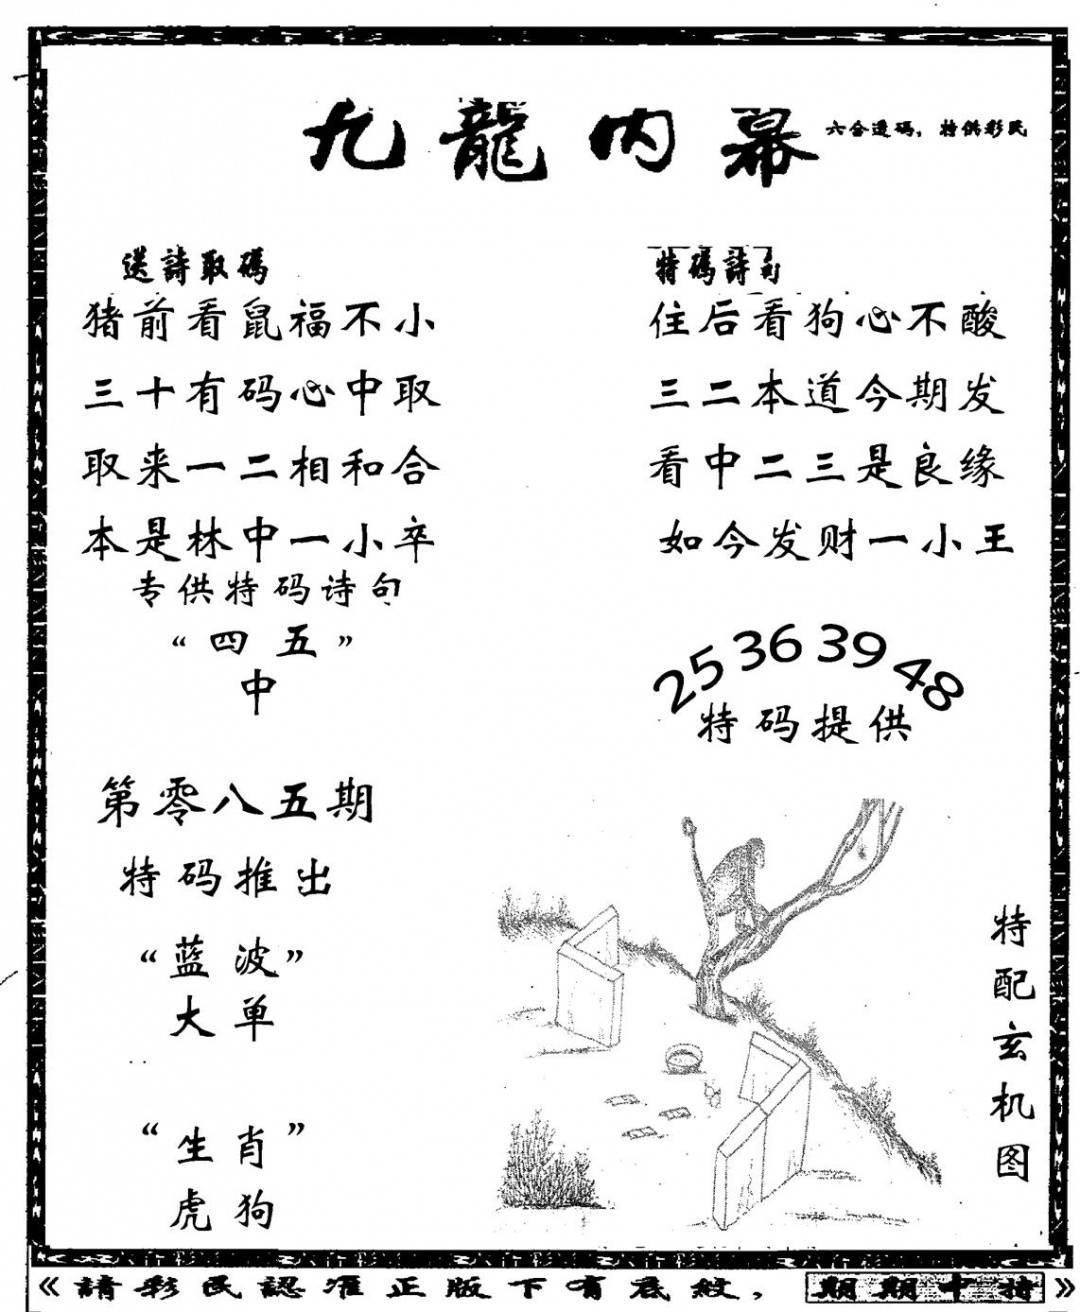 九龍内幕
六合透码，特供彩民
送詩取碼
猪前看鼠福不小
三十有码心中取
取来一二相和合
本是林中一小卒
特碼詩句
住后看狗心不酸
三二本道今期发
看中二三是良缘
如今发财一小王
专供特码诗句
“四五”
中
25 36 39 48
特码提供
第零八五期
特码推出
“蓝波”
大单
“生肖”
虎狗
特配玄机图
《請彩民認准正版下有底紋，期期中特》